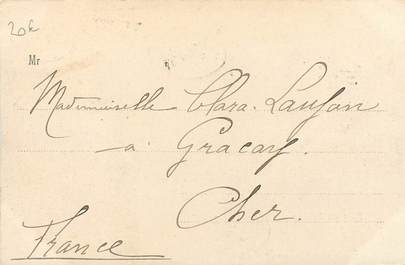 20k
Mr
Mademoiselle Clara Laujon
à Graçay
Cher.
France